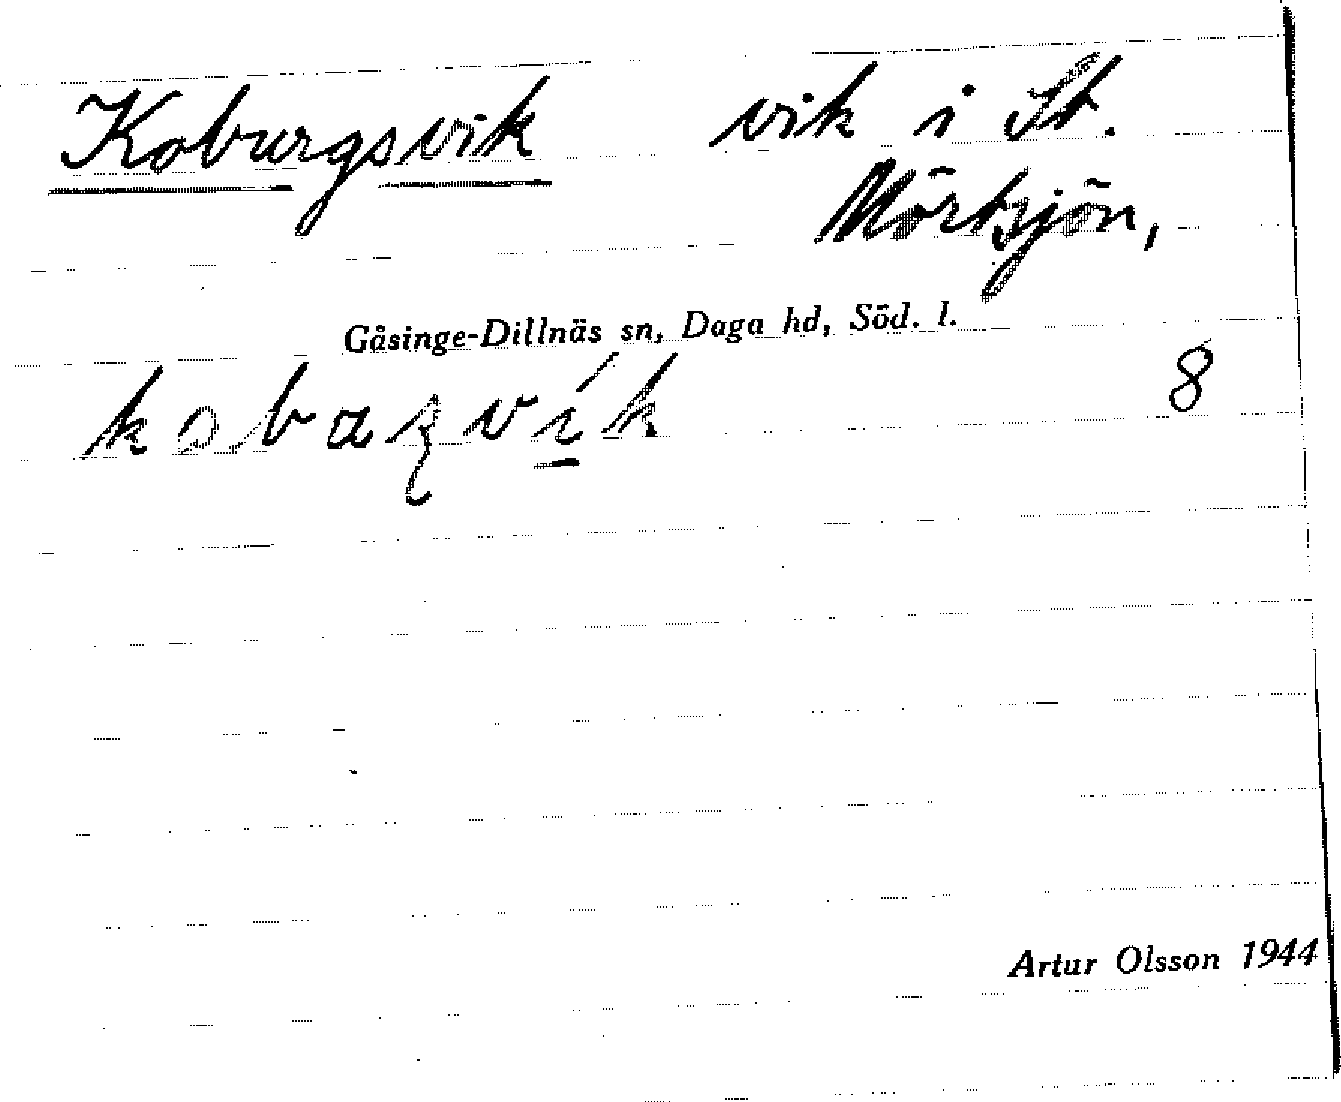 Koburgsvik vik i St.
Mörtsjön,
Gåsinge-Dillnäs sn, Daga hd, Söd. l.
8
Artur Olsson 1944